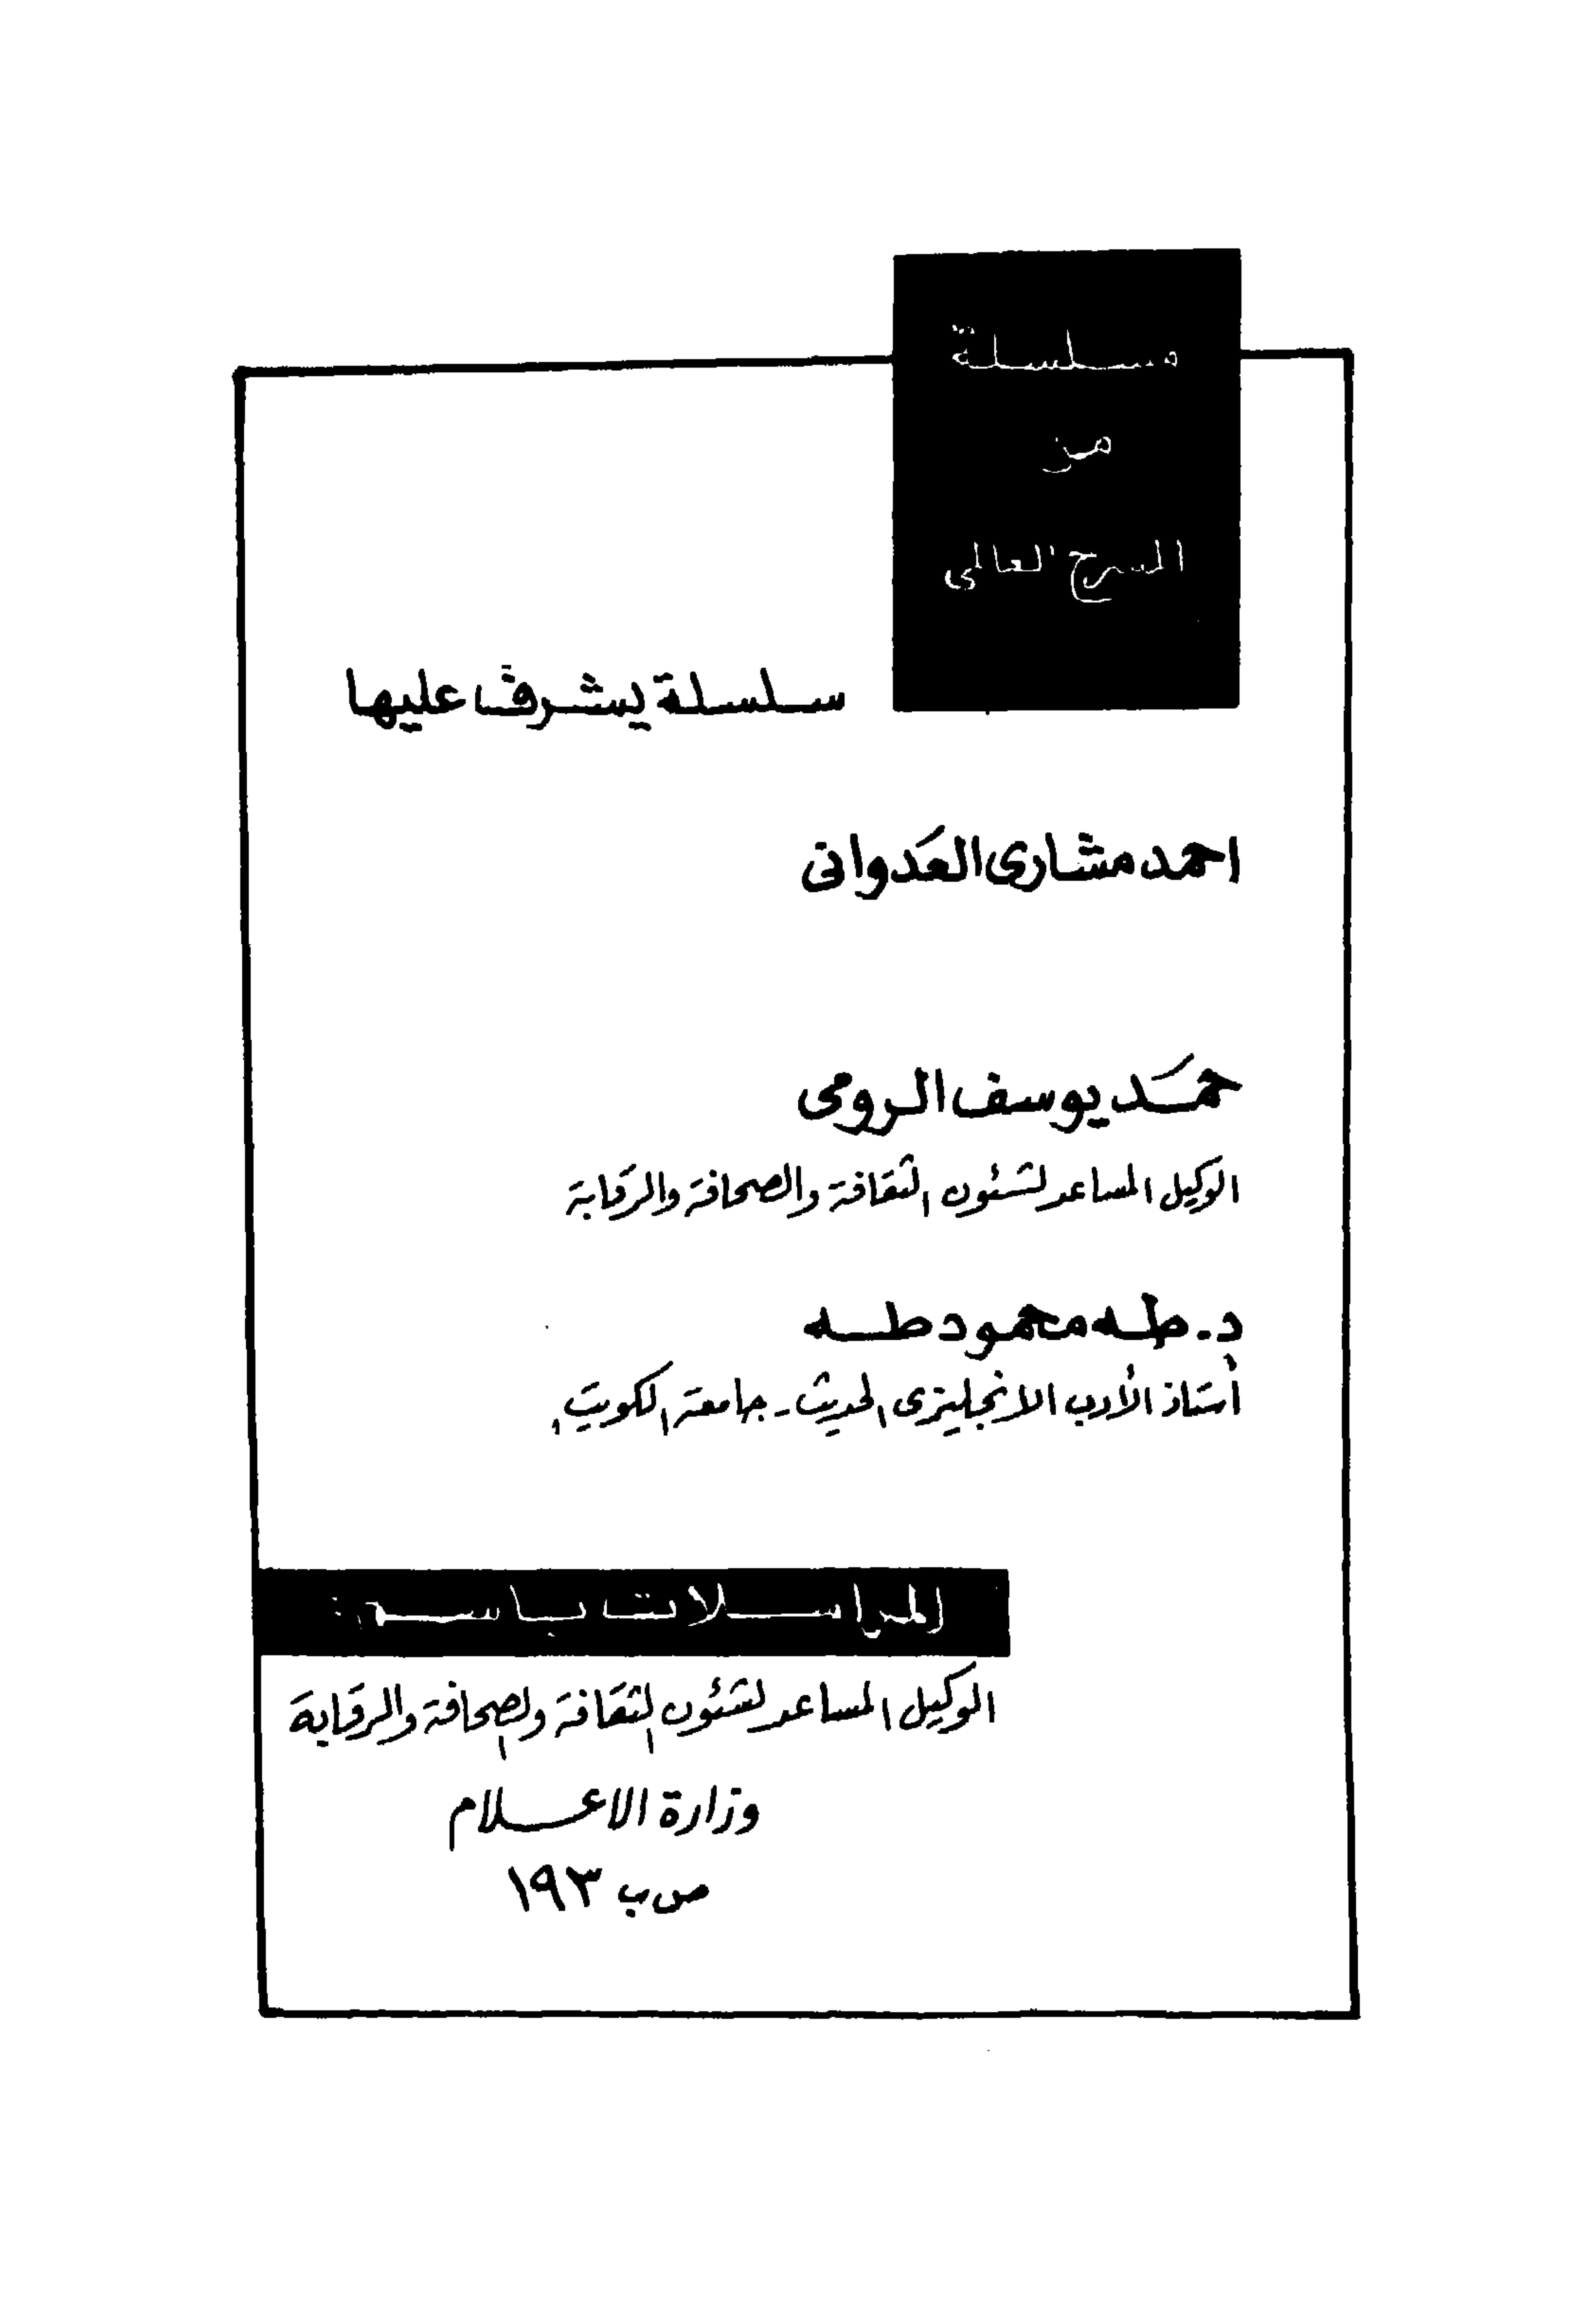 سلسلة
من
المسرح العالمي
سلسلة يشرف عليها
احمد مشارى العدوانى
حمد يوسف الرومى
الوكيل المساعد لشئون الثقافة والصحافة والرقابة
د. طه محمود طه
أستاذ الأدب الانجليزى الحديث - جامعة الكويت
المراسلات باسم:
الوكيل المساعد لشئون الثقافة والصحافة والرقابة
وزارة الاعلام
ص ب ١٩٣